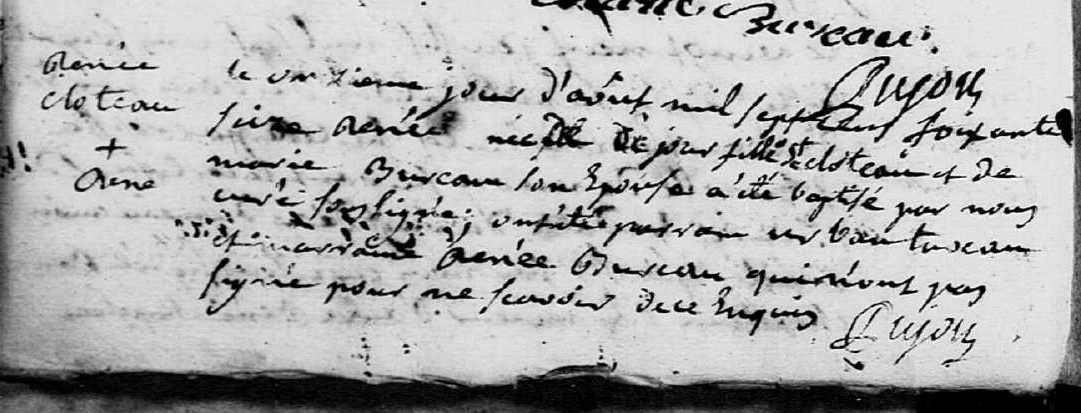 Bureau.
Dujon
Renée
cloteau
+
Rene
le onzieme jour d'août mil sept cent soixante
seize Renée née de ce jour fille de cloteau et de
marie Bureau son Epouse a été baptisé par nous
curé soussigné; ont été parrain urbain
et marraine Renée Bureau qui n'ont pas
signée pour ne scavoir de ce Enquis
Dujon